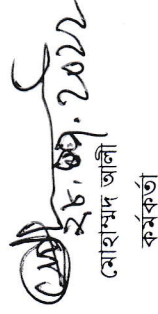 ২৮.০৭.২০২২
মোহাম্মদ আলী
কর্মকর্তা